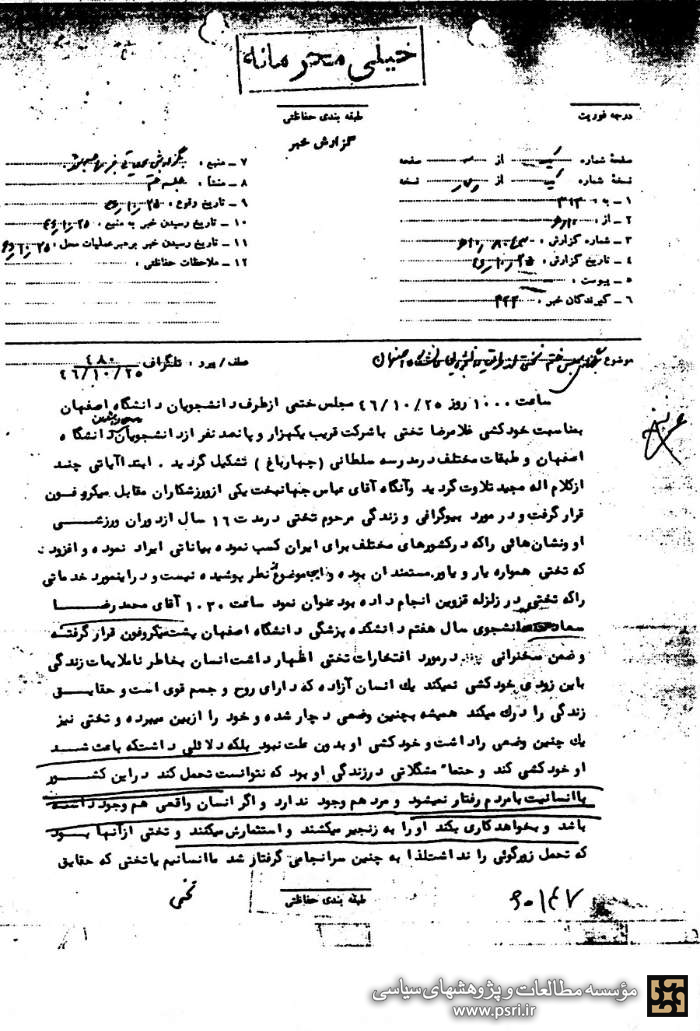 خیلی محرمانه
طبقه بندی حفاظتی
درجه فوریت
گزارش خبر
صفحه شماره یک از صفحه
نسخهٔ شماره یک از نسخه
۱ ــ به : ۳۱۲
۲ ــ از :
۳ ــ شماره گزارش :
۴ ــ تاریخ گزارش :
۵ ــ پیوست :
۶ ــ گیرندگان خبر :
۷ ــ منبع :
۸ ــ منشأ :
۹ ــ تاریخ وقوع : ۴۶/۱۰/۲۵
۱۰ ــ تاریخ رسیدن خبر به منبع : ۴۶/۱۰/۲۵
۱۱ ــ تاریخ رسیدن خبر برهبر عملیات محل : ۴۶/۱۰/۲۵
۱۲ ــ ملاحظات حفاظتی :
موضوع : مجلس ختم تختی از طرف دانشجویان دانشگاه اصفهان
عطف / پیرو : تلگراف ۴۸۰
۴۶/۱۰/۲۵
ساعت ۱۰۰۰ روز ۴۶/۱۰/۲۵ مجلس ختمی ازطرف دانشجویان دانشگاه اصفهان
بمناسبت خودکشی غلامرضا تختی با شرکت قریب یکهزار و پانصد نفر از دانشجویان دانشگاه
اصفهان و طبقات مختلف در مدرسه سلطانی (چهارباغ ) تشکیل گردید . ابتدا آیاتی چند
از کلام اله مجید تلاوت گردید وآنگاه آقای عباس جهانبخت یکی ازورزشکاران مقابل میکروفون
قرار گرفت و در مورد بیوگرافی و زندگی مرحوم تختی در مدت ۱۶ سال ازدوران ورزشی
او و نشان هائی راکه درکشورهای مختلف برای ایران کسب نموده بیاناتی ایراد نموده و افزود :
که تختی همواره یار و یاور مستمندان بوده و این موضوع از نظر پوشیده نیست و دراینمورد خدماتی
راکه تختی در زلزله قزوین انجام داده بود عنوان نمود ساعت ۱۰۳۰ آقای محمد رضا
دانشجوی سال هفتم دانشکده پزشکی دانشگاه اصفهان پشت میکروفون قرار گرفته
و ضمن سخنرانی درمورد افتخارات تختی اظهار داشت انسان بخاطر ناملایمات زندگی
باین زودی خودکشی نمیکند یك انسان آزاده که دارای روح و جسم قوی است و حقایق
زندگی را درك میکند همیشه بچنین وضعی دچار شده و خود را ازبین میبرد و تختی نیز
یك چنین وضعی راداشت و خودکشی او بدون علت نبود بلکه دلائلی داشتکه باعث شد
او خودکشی کند و حتما" مشکلاتی درزندگی او بود که نتوانست تحمل کند دراین کشور
باانسانیت بامردم رفتار نمیشود و مرد هم وجود ندارد و اگر انسان واقعی هم وجود داشته
باشد و بخواهد کاری بکند او را به زنجیر میکشند و استثمارش میکنند و تختی ازآنها بود
که تحمل زورگوئی را نداشت لذا به چنین سرانجامی گرفتار شد ماانسانیم یاتختی که حقایق
طبقه بندی حفاظتی
۶۰۱۴۷
مؤسسه مطالعات و پژوهشهای سیاسی
www.psri.ir